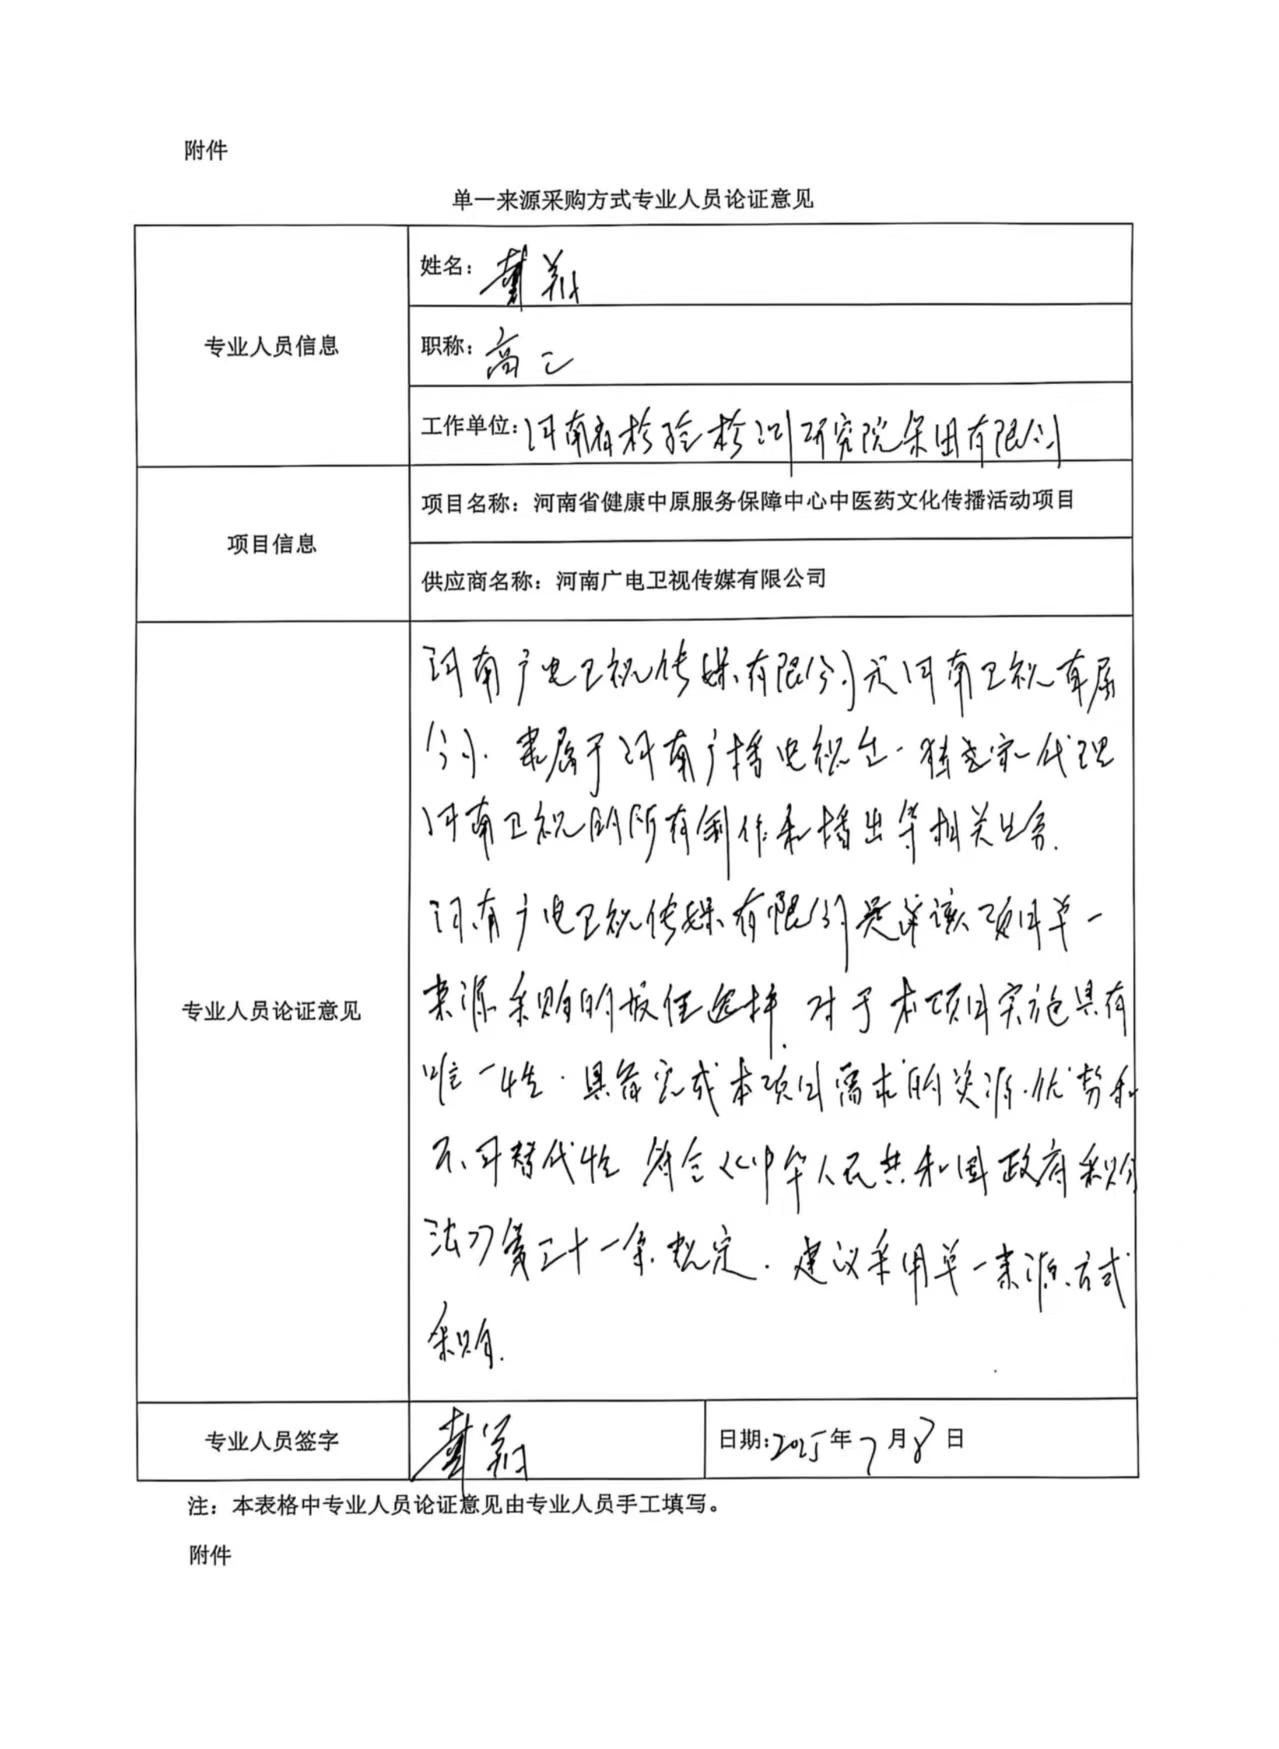 附件
单一来源采购方式专业人员论证意见
专业人员信息
姓名：
职称：高工
工作单位：河南省检验检测研究院集团有限公司
项目信息
项目名称：河南省健康中原服务保障中心中医药文化传播活动项目
供应商名称：河南广电卫视传媒有限公司
专业人员论证意见
河南广电卫视传媒有限公司是河南卫视直属
公司，隶属于河南广播电视台，独家代理
河南卫视的所有制作和播出等相关业务.
河南广电卫视传媒有限公司是该项目单一
来源采购的最佳选择，对于本项目实施具有
唯一性，具备完成本项目需求的资源、优势和
不可替代性 符合《中华人民共和国政府采购
法》第三十一条规定，建议采用单一来源方式
采购.
专业人员签字
日期：2025年7月8日
注：本表格中专业人员论证意见由专业人员手工填写。
附件